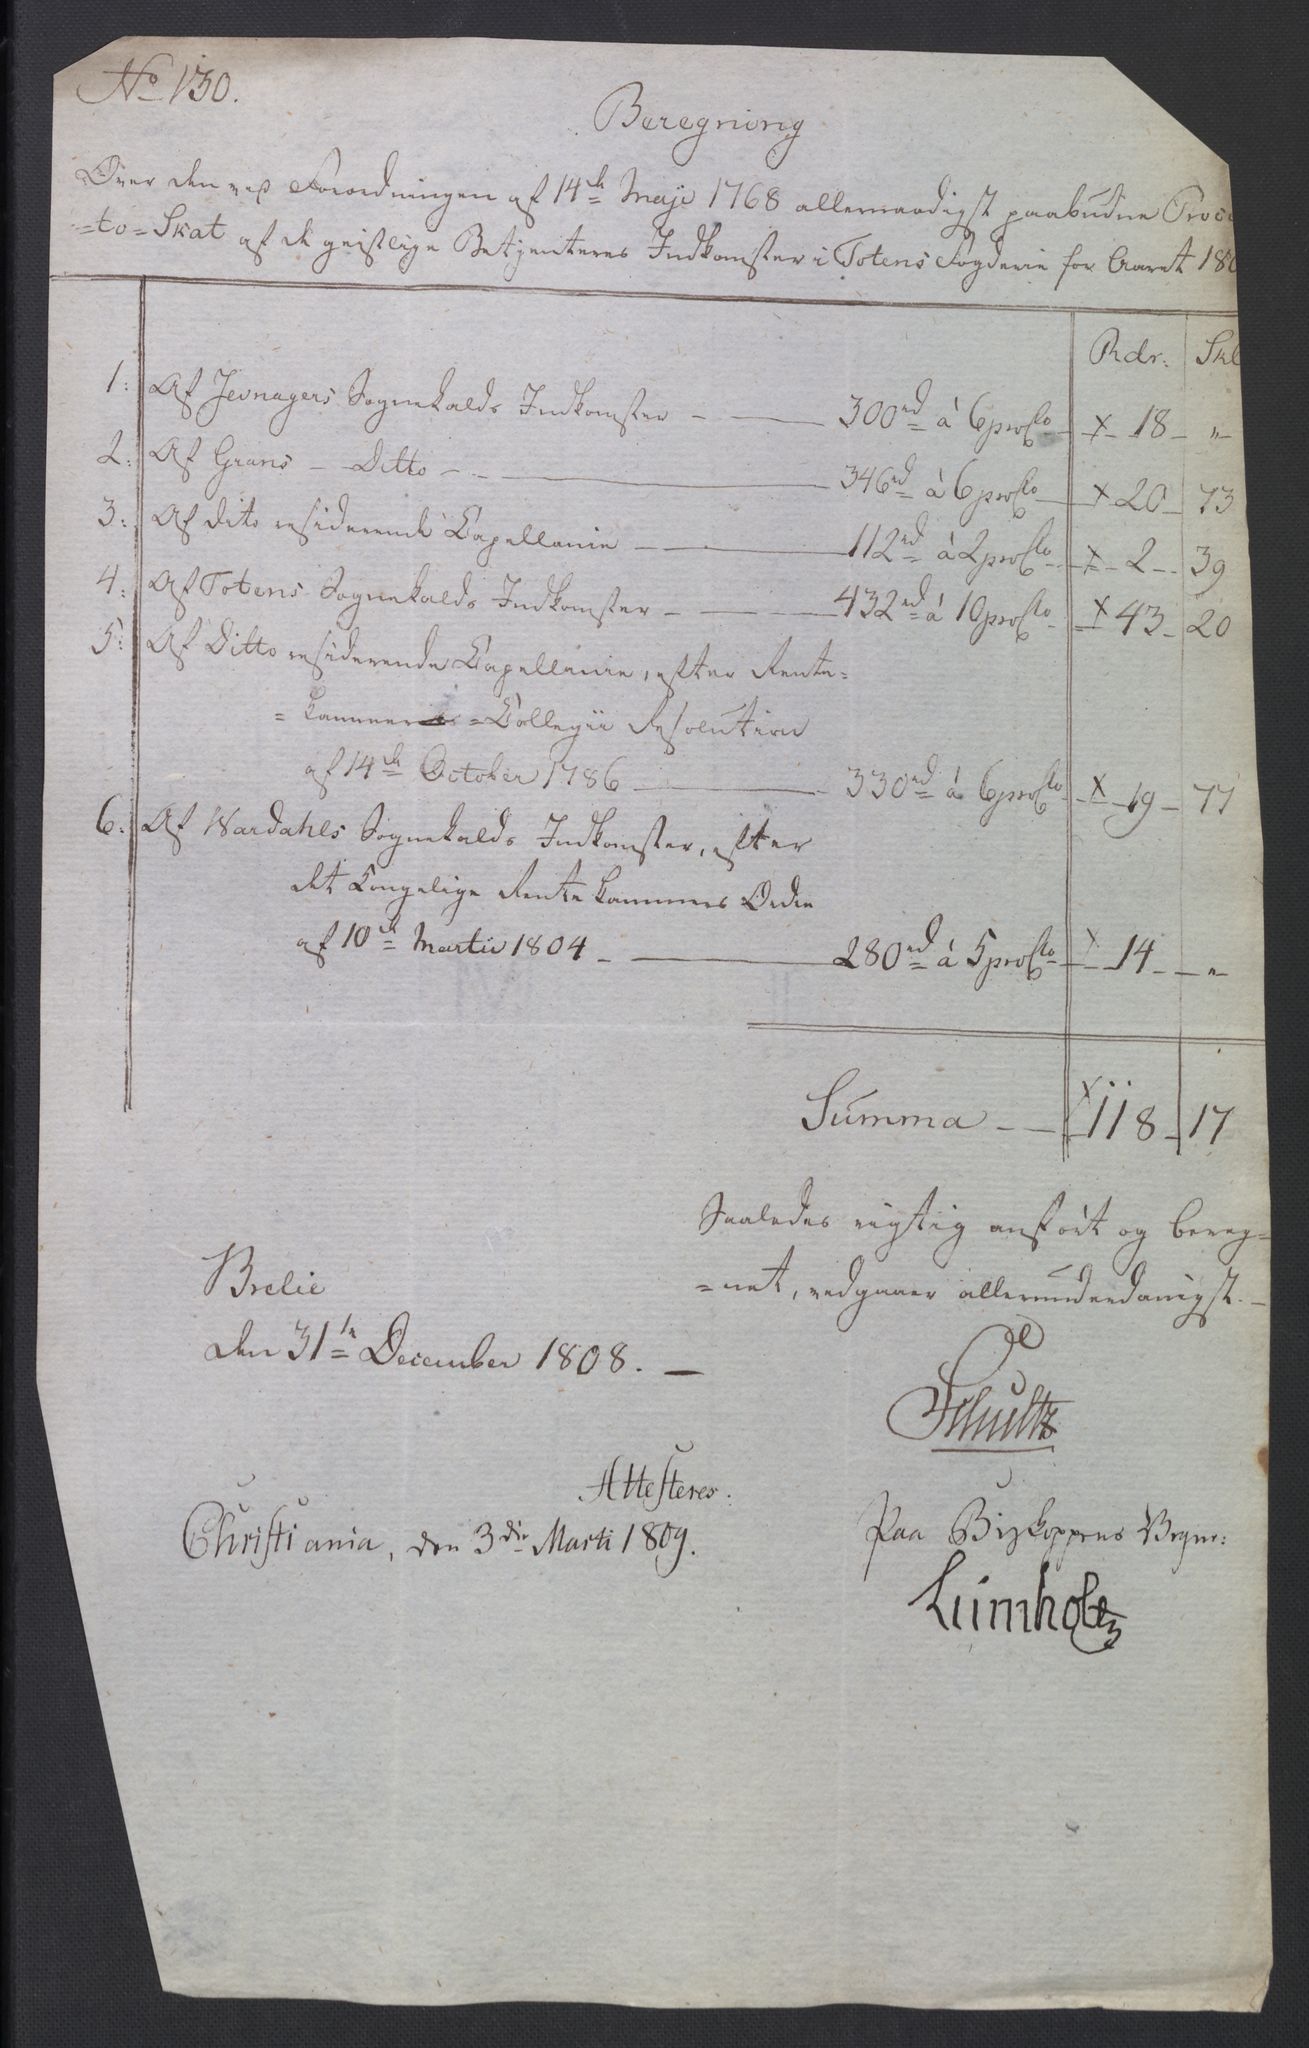 No 130.
Beregning
Over den ved Forordningen af 14de Maje 1768 allernaadigst paabudne Proce
=to=Skat af de geistlige Betjenteres Indkomster i Totens Fogderie for Aaret 180
Rdr. Skl
1. Af Jevnagers Sognekalds Indkomster — — 300rd à 6 proCto — x 18 — "
2. Af Grans — Ditto — — 346rd à 6 proCto — x 20 — 73
3. Af dito residerende Capellanie — — 112rd à 2 proCto — x 2 — 39
4. Af Totens Sognekalds Indkomster — — 432rd à 10 proCto — x 43 — 20
5. Af Ditto residerende Capellanie, efter Rente=
=Kammer =Collegii Resolution
af 14de October 1786 — 330rd à 6 proCto — x 19 — 77
6. Af Wardahls Sognekalds Indkomster, efter
det Kongelige Rente Kammers Ordre
af 10de Martii 1804 — — 280rd à 5 proCto — x 14 — "
Summa — — x 118 — 17
Saaledes rigtig anført og bereg=
=net, vedgaaer allerunderdanigst. —
Brelie
den 31te December 1808. —
Schultz
Attesteres:
Christiania, den 3die Marti 1809.
Paa Biskoppens Vegne:
Lumholtz